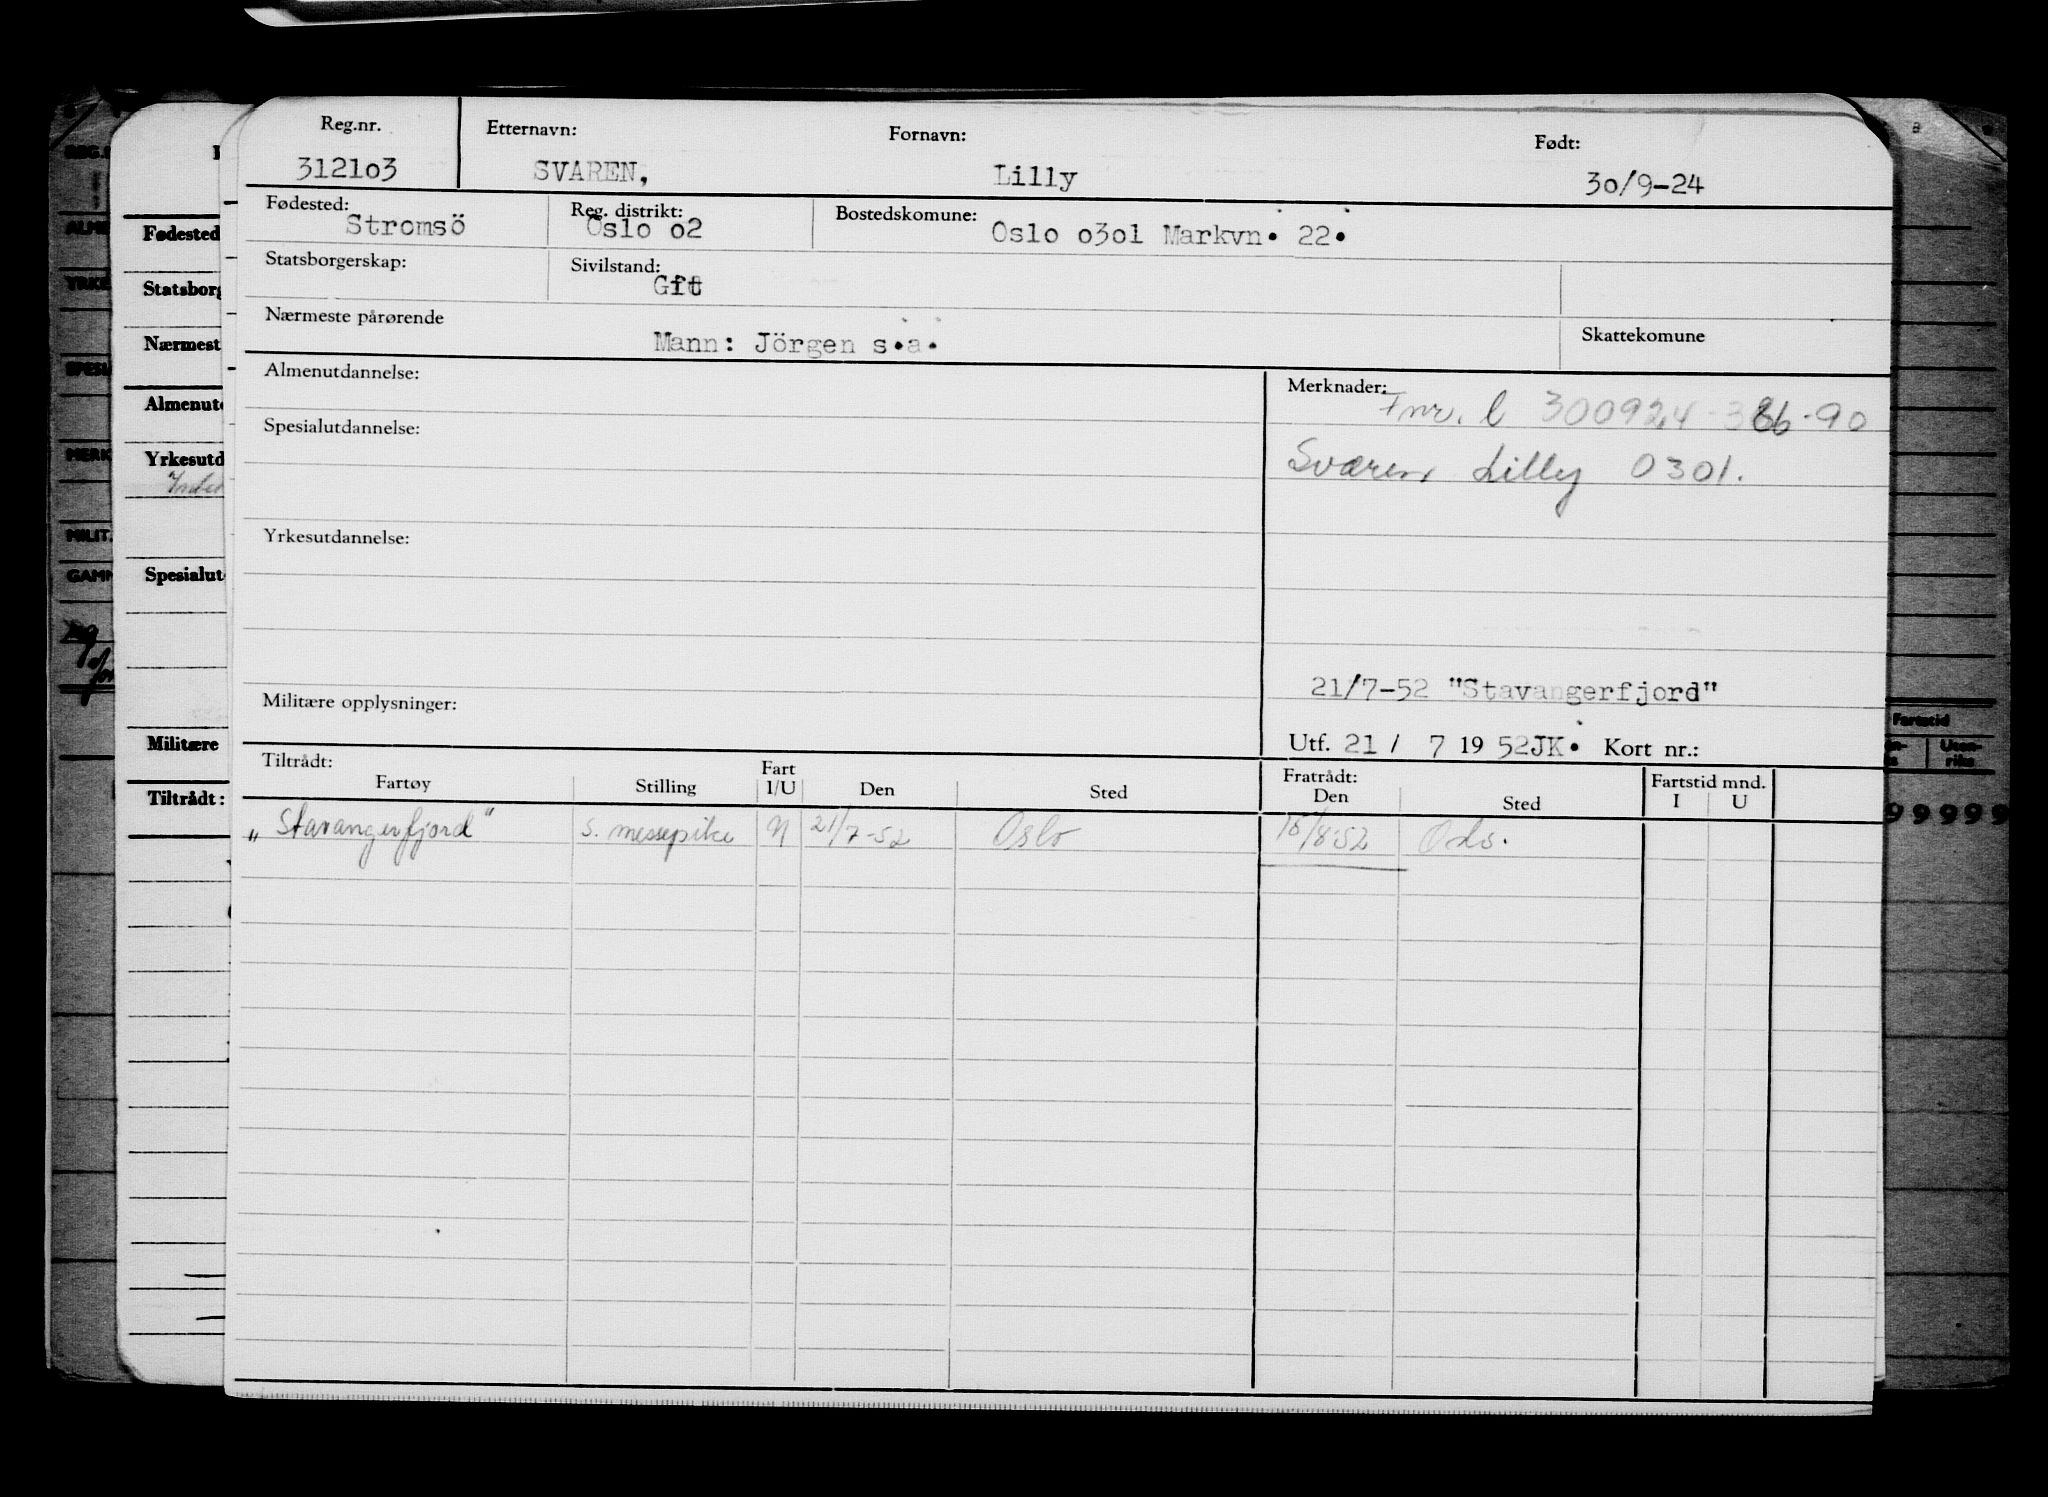 Reg.nr. Etternavn: Fornavn: Født:
3121o3 SVAREN, Lilly 3o/9-24
Fødested: Reg. distrikt: Bostedskomune:
Stromsö Oslo o2 Oslo o3o1 Markvn. 22.
Statsborgerskap: Sivilstand:
Gft
Nærmeste pårørende Skattekomune
Mann: Jörgen s.a.
Almenutdannelse: Merknader:
Fnr. 300924 90
Spesialutdannelse:
Sværen Lilly 0301.
Yrkesutdannelse:
21/7-52 "Stavangerfjord"
Militære opplysninger:
Utf. 21 / 7 19 52JK. Kort nr.:
Tiltrådt: Fart Fratrådt: Fartstid mnd.
Fartøy Stilling I/U Den Sted Den Sted I U
„Stavangerfjord" S. messepike 21/7-52 Oslo 15/8-52 Oslo.
Fødested
Statsborg
Nærmest
Almenut
Yrkesutd
Spesialut
Militære
Tiltrådt:
MILIT.
Fartstid
99999